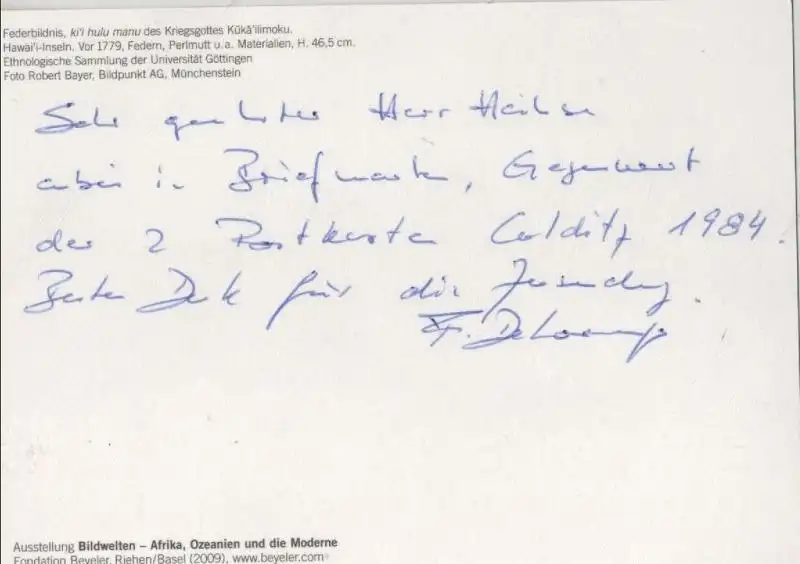 Federbildnis, ki'i hulu manu des Kriegsgottes Kūkā'ilimoku.
Hawai'i-Inseln. Vor 1779, Federn, Perlmutt u. a. Materialien, H. 46,5 cm.
Ethnologische Sammlung der Universität Göttingen
Foto Robert Bayer, Bildpunkt AG, Münchenstein
Sehr geehrter Herr
anbei in Briefmarken, Gegenwert
der 2 Postkarten Colditz 1984.
Besten Dank für die Zusendung.
F.
Ausstellung Bildwelten – Afrika, Ozeanien und die Moderne
Fondation Beyeler, Riehen/Basel (2009), www.beyeler.com